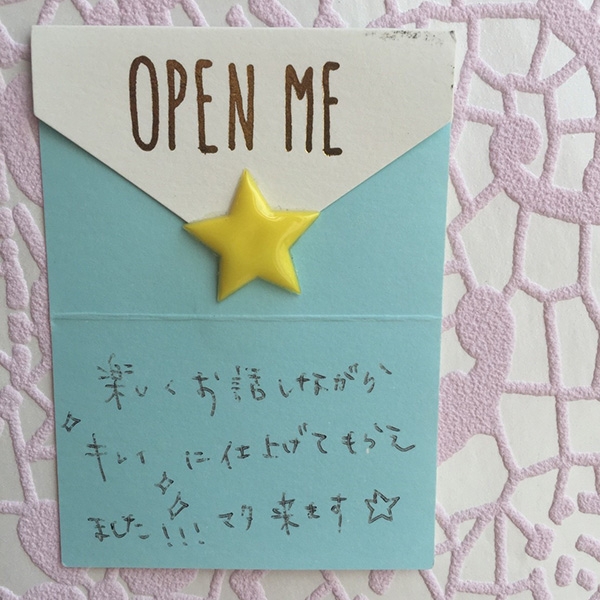 OPEN ME
楽しくお話しながら
キレイに仕上げてもらえ
ました!!! マタ来ます☆